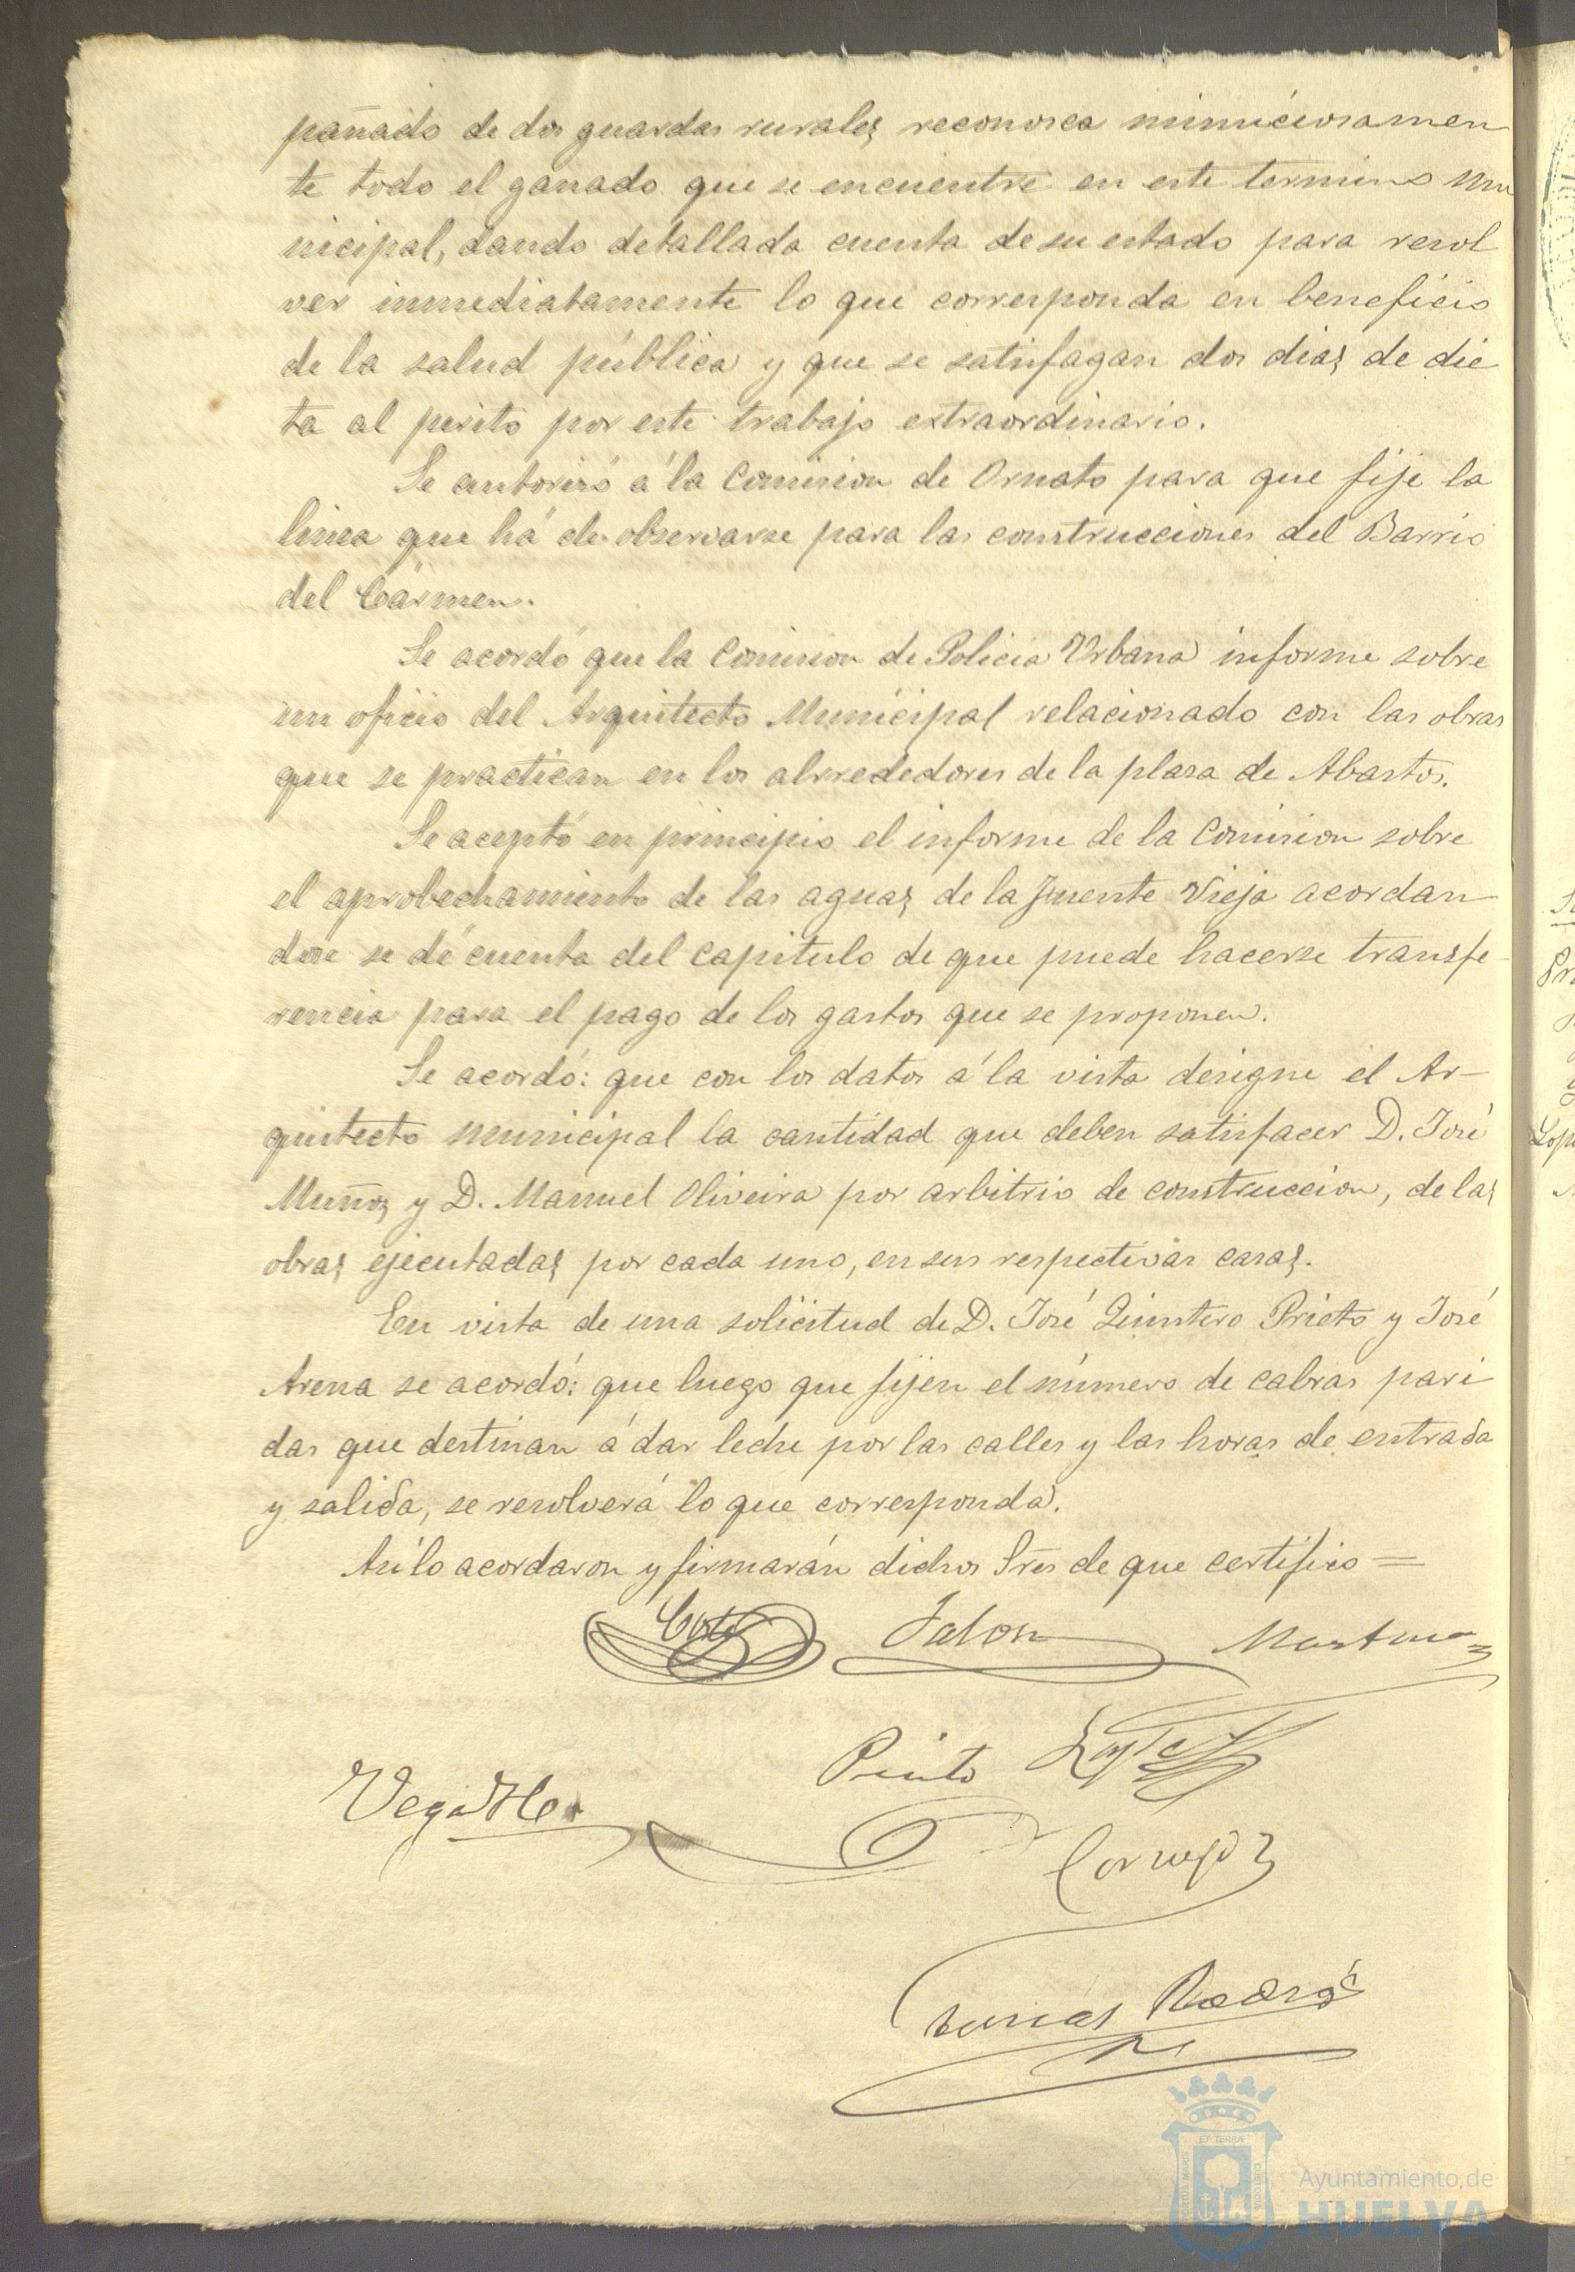 pañado de dos guardas rurales reconosca minuciosamen
te todo el ganado que se encuentre en este termino mu
nicipal, dando detallada cuenta de su estado para resol
ver inmediatamente lo que corresponda en beneficio
de la salud pública y que se satisfagan dos dias de die
ta al perito por este trabajo extraordinario.
Se autorizó á la Comision de Ornato para que fije la
linea que há de observarse para las construcciones del Barrio
del Cármen.
Se acordó que la Comision de Policia Urbana informe sobre
un oficio del Arquitecto Municipal relacionado con las obras
que se practican en los alrrededores de la plasa de Abastos.
Se aceptó en principio el informe de la Comision sobre
el aprobechamiento de las aguas de la Fuente Vieja acordan
dose se dé cuenta del capitulo de que puede hacerse transfe-
rencia para el pago de los gastos que se proponen.
Se acordó: que con los datos á la vista designe el Ar-
quitecto Municipal la cantidad que deben satisfacer D. José
Muñoz y D. Manuel Oliveira por arbitrio de construccion, de las
obras ejecutadas por cada uno, en sus respectivas casas.
En vista de una solicitud de D. José Quintero Prieto y José
Arena se acordó: que luego que fijen el número de cabras pari
das que destinan á dar leche por las calles y las horas de entrada
y salida, se resolverá lo que corresponda.
Asi lo acordaron y firmarán dichos Sres de que certifico =
Coto Jalon Martinez
Pinto Lopez
Vega
Cornejo
Tomás Rodrig
Ayuntamiento de
HUELVA